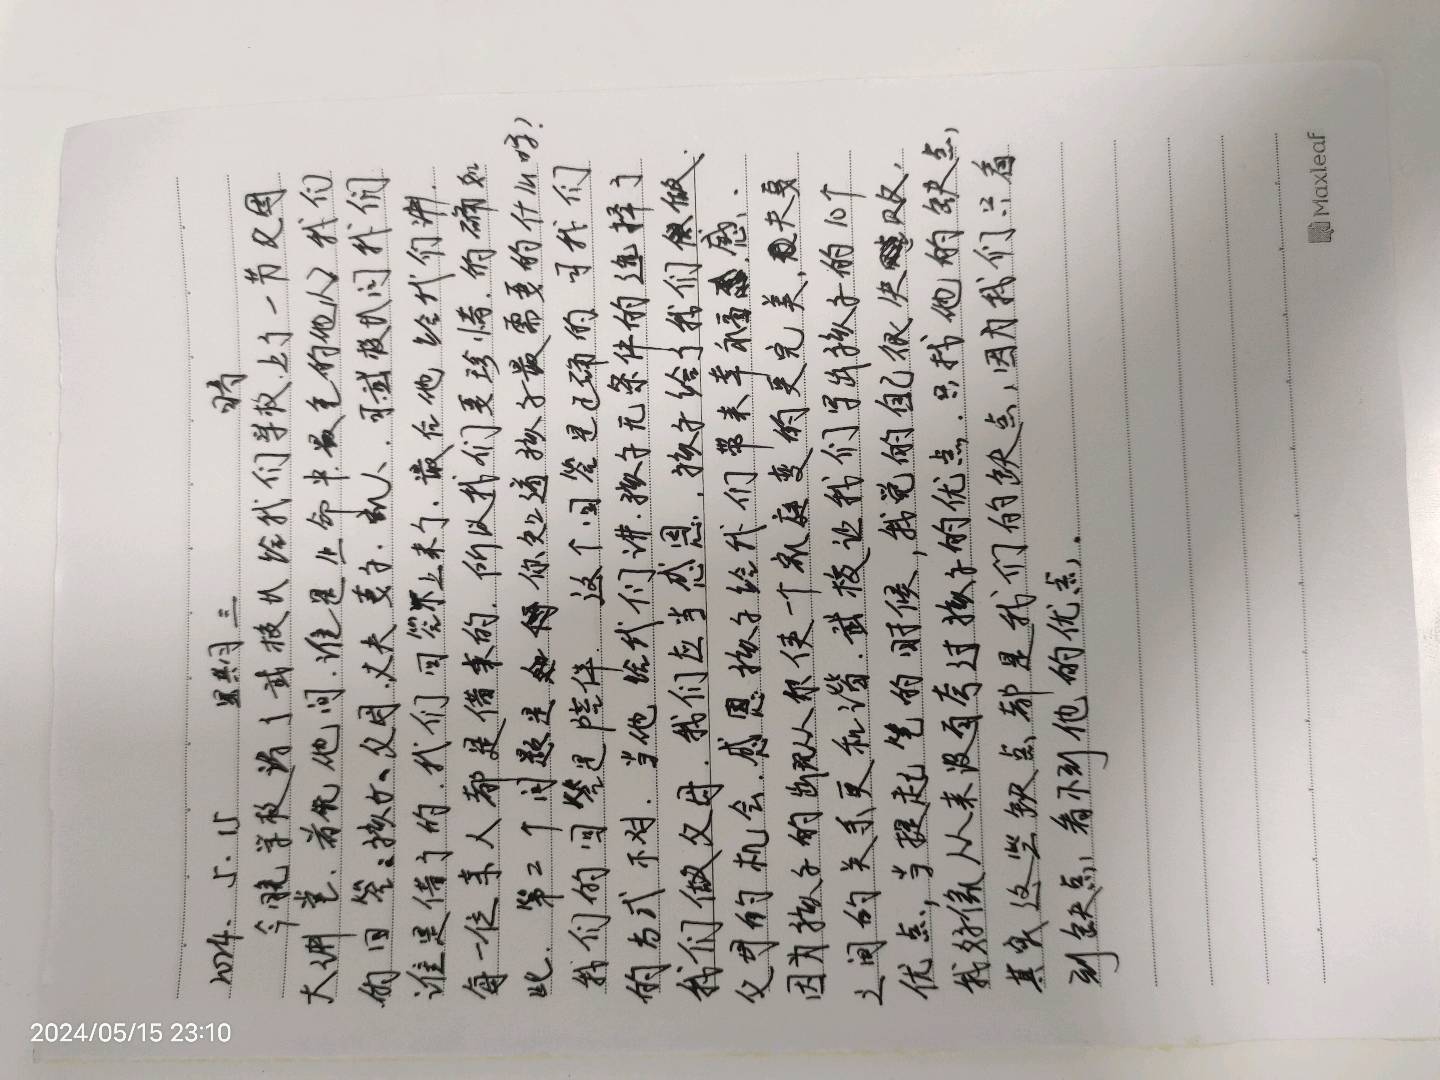 2024. 5. 15 星期三 晴
今晚学校请了武校长给我们学校上了一节父母
大讲堂、首先他问.谁是生命中最重的他人?我们
的回答:孩子、父母.丈夫妻子.家人.可武校长问我们
谁是借了的.我们回答不上来了.最后他给我们讲.
每一位亲人都是借来的.所以我们要珍惜.的确如
此.第2个问题是 你知道孩子最需要的什么吗?
我们的回答是陪伴 这个回答是正确的 可我们
的方式不对.当他给我们讲.孩子无条件的选择了
我们做父母.我们应当感恩.孩子给了我们做
父母的机会.感恩孩子给我们带来幸福感.
因为孩子的出现从而使一个家庭变的更完美,夫妻
之间的关系更和谐.武校让我们写出孩子的10个
优点,当提起笔的时候,我觉的自己很失败,
我好像从来没有夸过孩子的优点.只找他的缺点,
其实这些缺点都是我们的缺点,因为我们只看
到缺点,看不到他的优点.
Maxleaf
2024/05/15 23:10